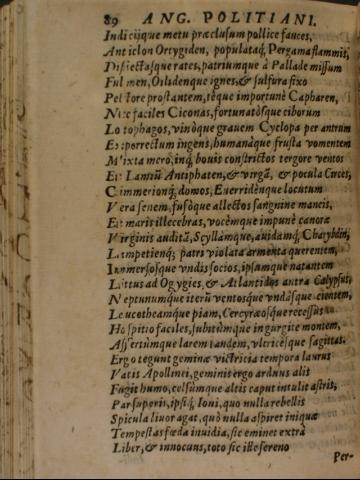 89 ANG. POLITIANI.
Indiciique metu præclusum pollice fauces,
Anticlon Ortygiden, populataq́; Pergama flammis,
Disiectasque rates, patriumque à Pallade missum
Fulmen, Oilidenque ignes, & sulfura fixo
Pectore prostantem, téque importunè Caphareu,
Nec faciles Ciconas, fortunatósque ciborum
Lotophagos, visósque grauem Cyclopa per antrum
Exporrectum ingens, humanáque frusta vomentem
Mixta mero, inq́; bouis constrictos tergore ventos
Et Lamũ Antiphaten, & virgã, & pocula Circes,
Cimmerionq́; domos, Euerridénque locutum
Vera senem, fusóque allectos sanguine maneis,
Et maris illecebras, vocémque impunè canoræ
Virginis auditã, Scyllámque, auidamq́; Charybdin,
Lampetienq́; patri violata armenta querentem,
Immersosque vndis socios, ipsumque natantem
Littus ad Ogygies, & Atlantidos antra Calypsus,
Neptunumque iterũ ventosque vndásque cientem,
Leucotheamque piam, Cercyræosque recessus
Hospitio faciles, subitúmque in gurgite montem,
Assertúmque larem tandem, vltricésque sagittas.
Ergo tegunt geminæ victricia tempora laurus
Vatis Apollinei, geminis ergo arduus alis
Fugit humo, celsúmque altis caput intulit astris,
Par superis, ipsiq́; Ioui, quo nulla rebellis
Spicula liuor agat, quò nulla aspiret iniquæ
Tempestas fœda inuidiæ, sic eminet extrà
Liber, & innocuus, toto sic ille sereno
Per-